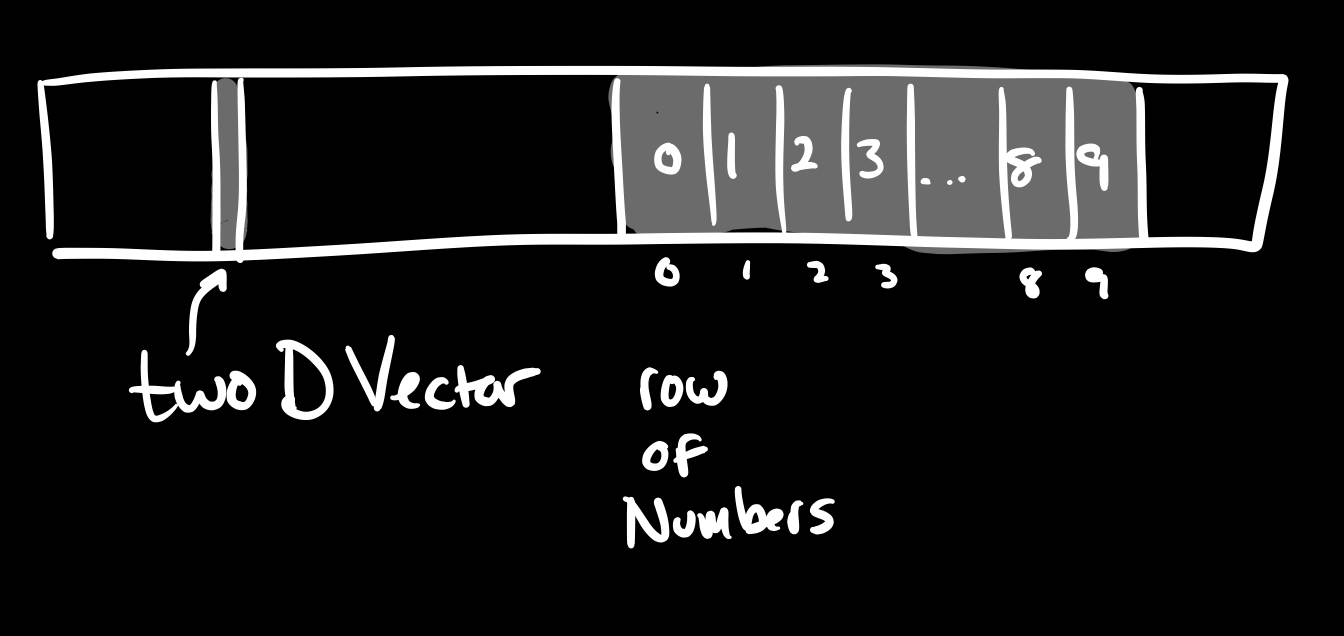 0 1 2 3 ... 8 9
0 1 2 3 8 9
two D Vector
row
of
Numbers